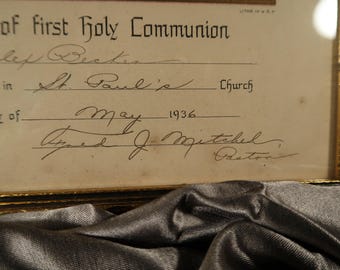 LITHO IN U.S.A.
of First Holy Communion
in St. Paul's Church
of May 1936
Fred J. Mitchel
Pastor